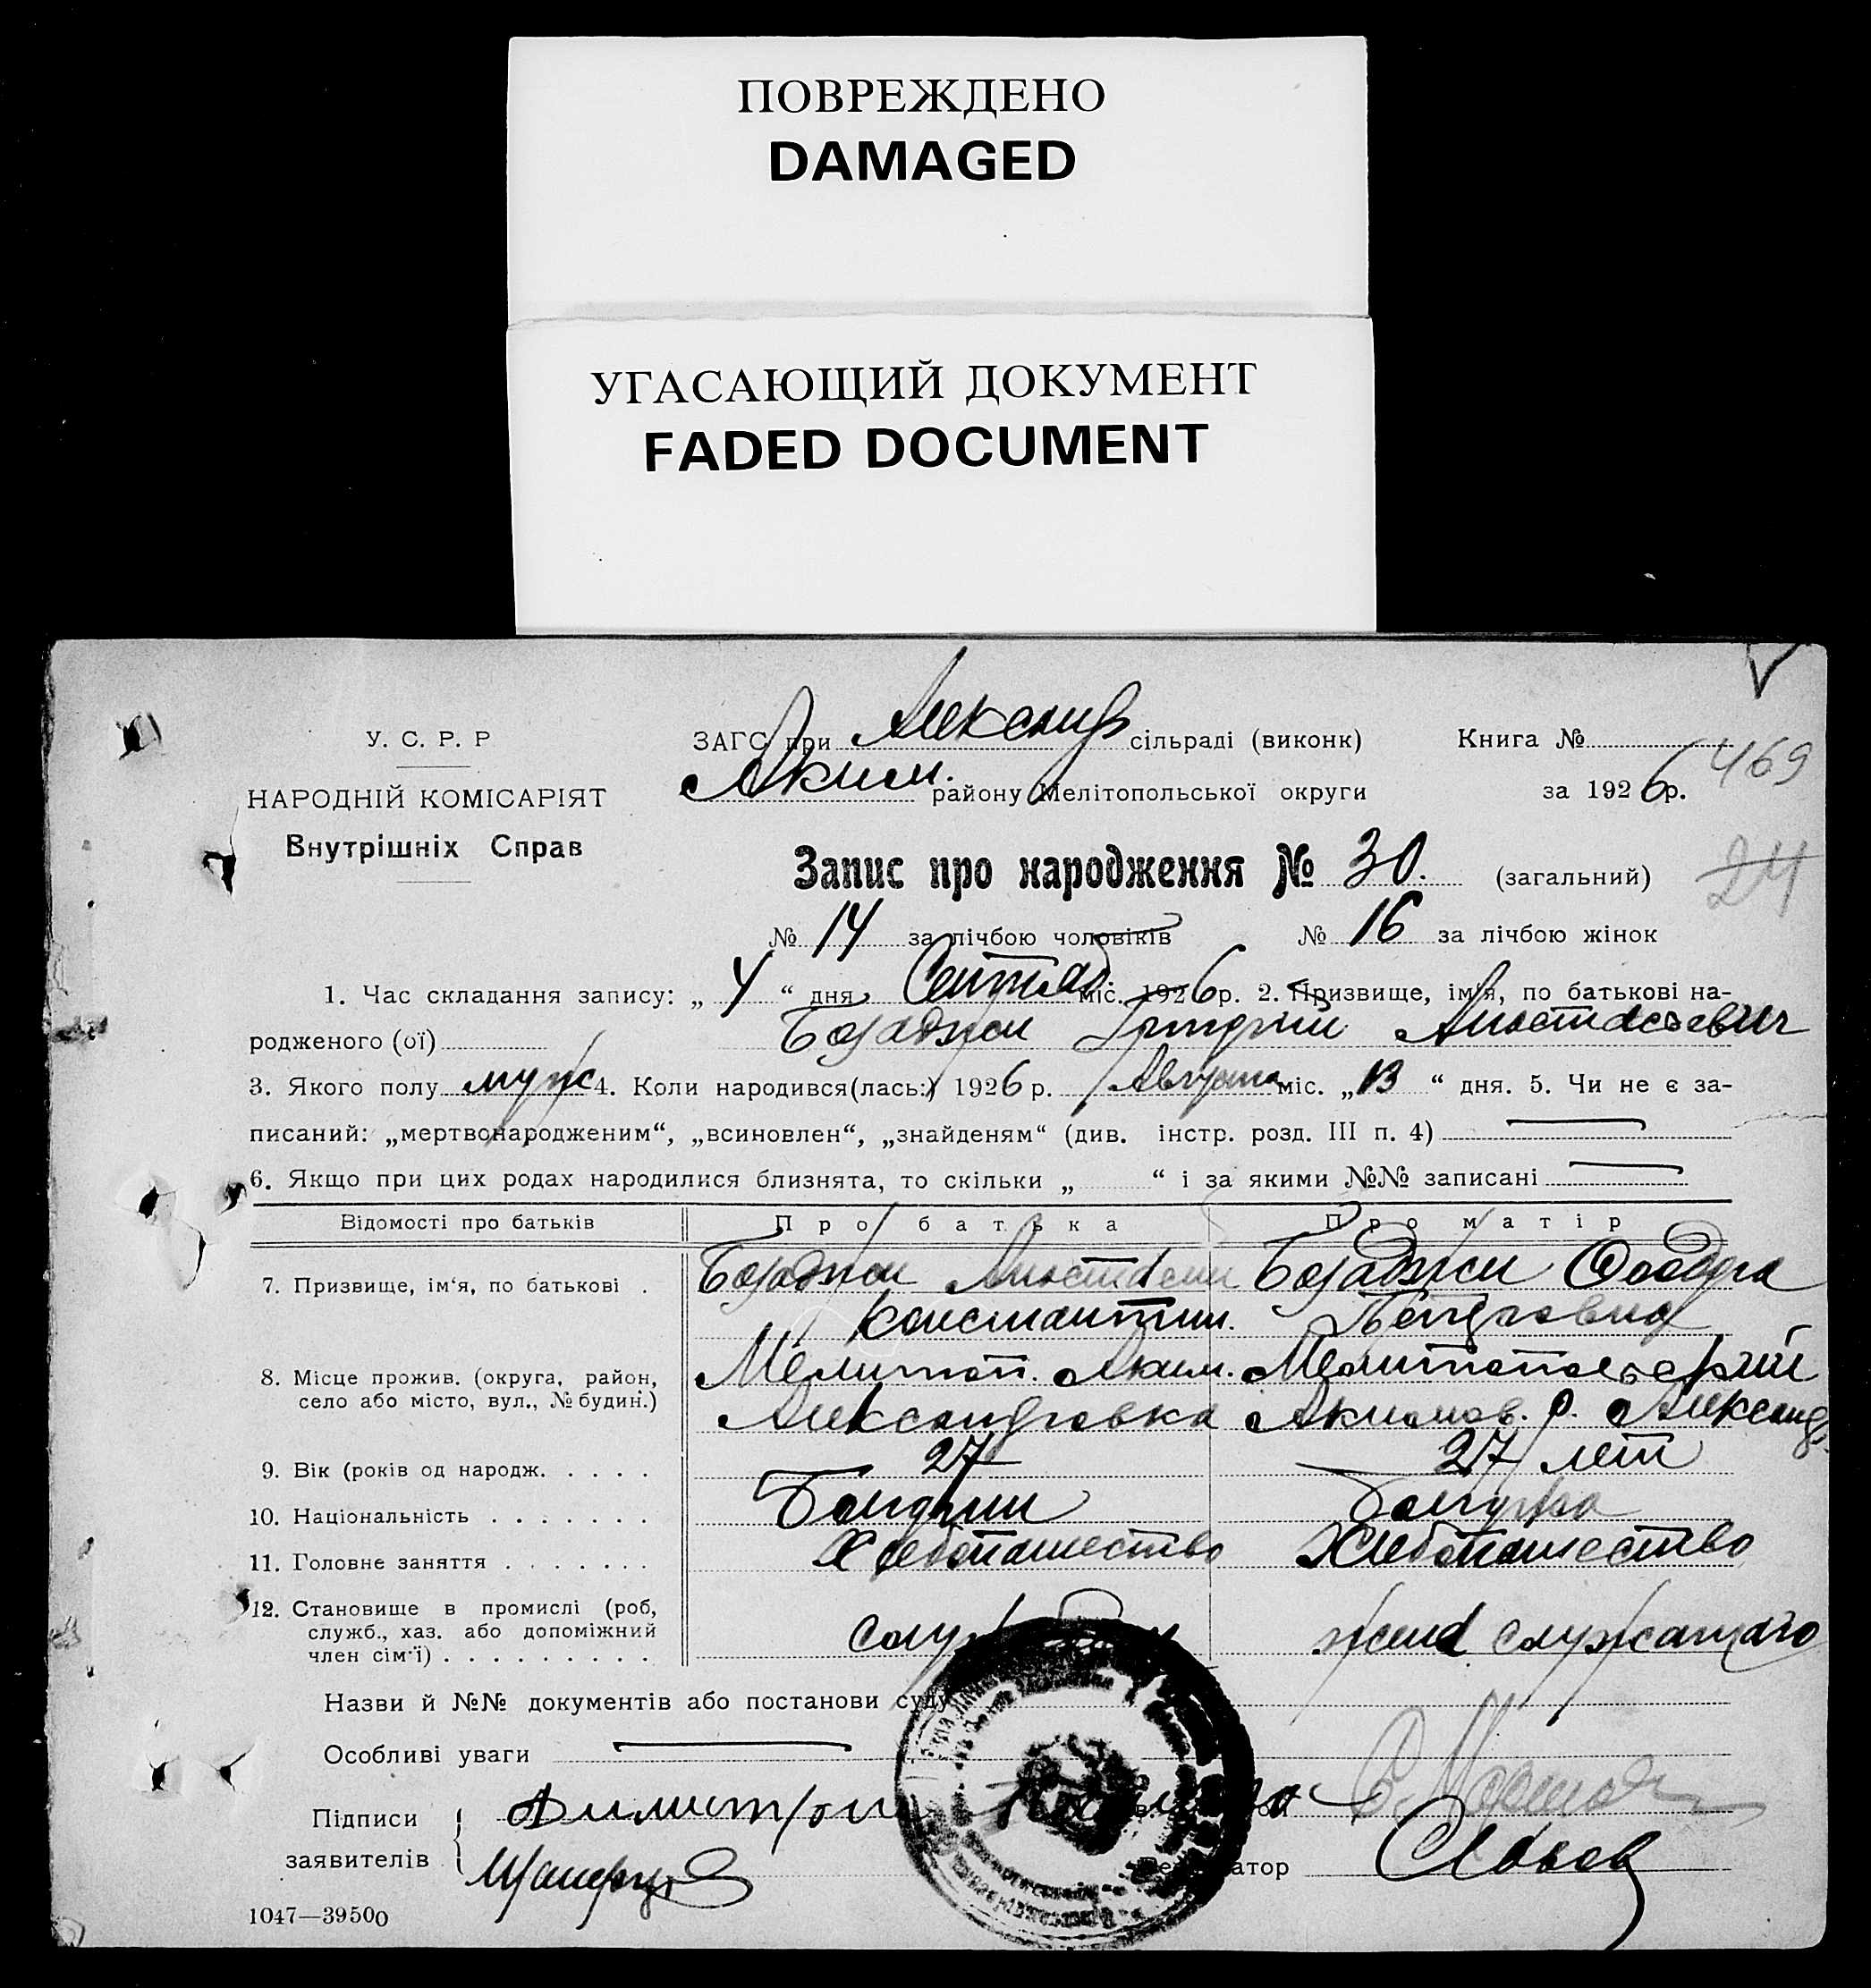 ПОВРЕЖДЕНО
DAMAGED
УГАСАЮЩИЙ ДОКУМЕНТ
FADED DOCUMENT
У. С. Р. Р
НАРОДНІЙ КОМІСАРІЯТ
Внутрішніх Справ
ЗАГС при Александр сільраді (виконк) Книга №
469
Аким. району Мелітопольської округи за 1926 р.
Запис про народження № 30. (загальний) 24
№ 14 за лічбою чоловіків № 16 за лічбою жінок
1. Час складання запису: „ 4 “ дня Сентяб. міс. 1926 р. 2. Призвище, ім'я, по батькові на-
родженого (ої) Бояджи Анастасьевич
3. Якого полу муж 4. Коли народився(лась:) 1926 р. Августа міс. „ 13 “ дня. 5. Чи не є за-
писаний: „мертвонародженим“, „всиновлен“, „знайденям“ (див. інстр. розд. III п. 4)
6. Якщо при цих родах народилися близнята, то скільки „ “ і за якими №№ записані
Відомості про батьків Про батька Про матір
7. Призвище, ім‘я, по батькові . Бояджи Бояджи
Константин. Петровна
8. Місце прожив. (округа, район, Мелитоп. Аким. Мелитопольский
село або місто, вул., № будин.) Александровка Акимов. р. Александр
9. Вік (років од народж. . . . . 27 27 лет
10. Національність . . . . . . .
11. Головне заняття . . . . . . . Хлебопашество Хлебопашество
12. Становище в промислі (роб,
служб., хаз. або допоміжний жена служащаго
член сім'ї) . . . . . . . . .
Назви й №№ документів або постанови суду
Особливі уваги
Підписи
заявителів
1047—39500